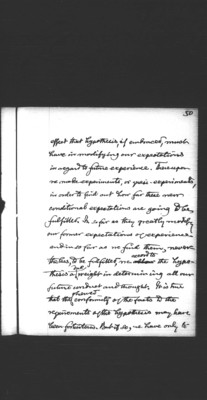 50
effect that hypothesis, if embraced, must
have in modifying our expectations
in regard to future experience. Thereupon
we make experiments, or quasi-experiments
in order to find out how far these new
conditional expectations are going to be
fulfilled. In so far as they greatly modify
our former expectations of experience
and in so far as we find them, never-
theless, to be fulfilled, we accord to the hypo-
thesis a due weight in determining all our
future conduct and thought. It is true
that the observed conformity of the facts to the
requirements of the hypothesis may have
been fortuitous. But if so, we have only to